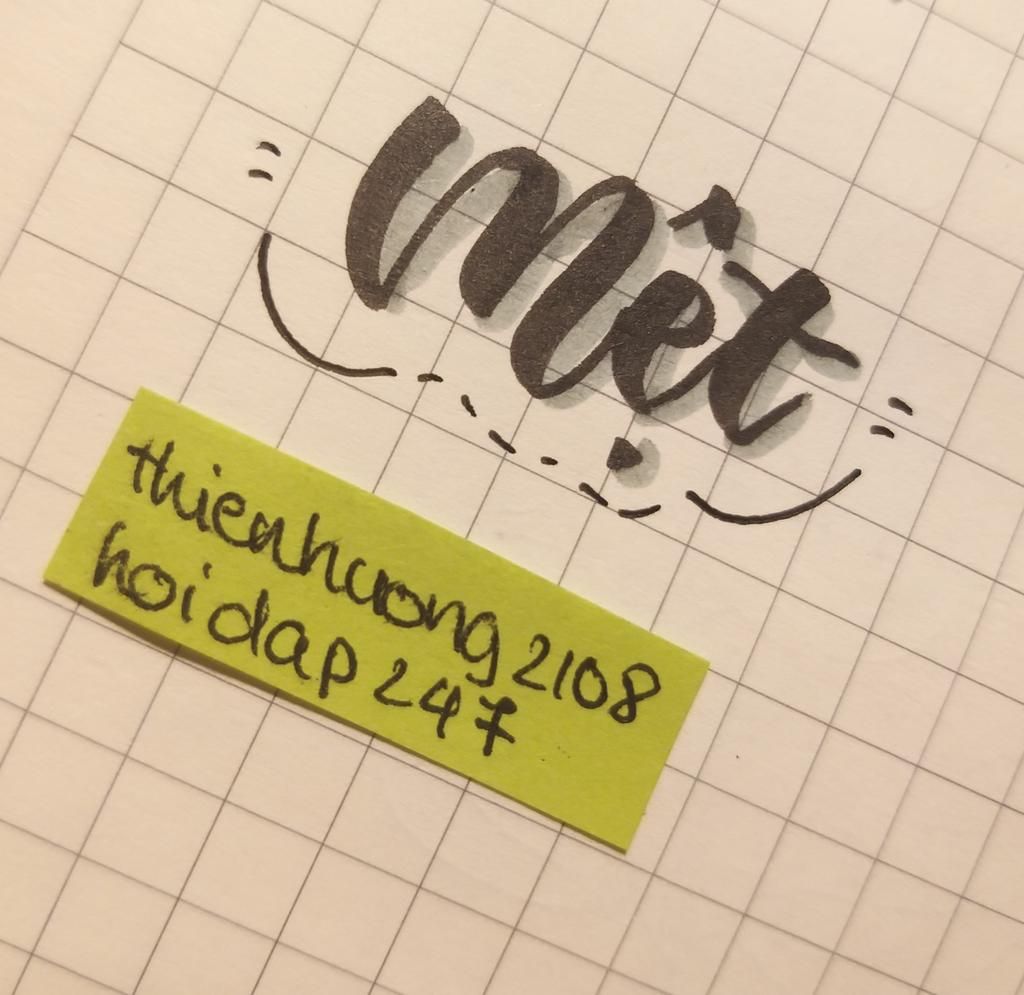 mệt
thienhuong2108
hoidap247